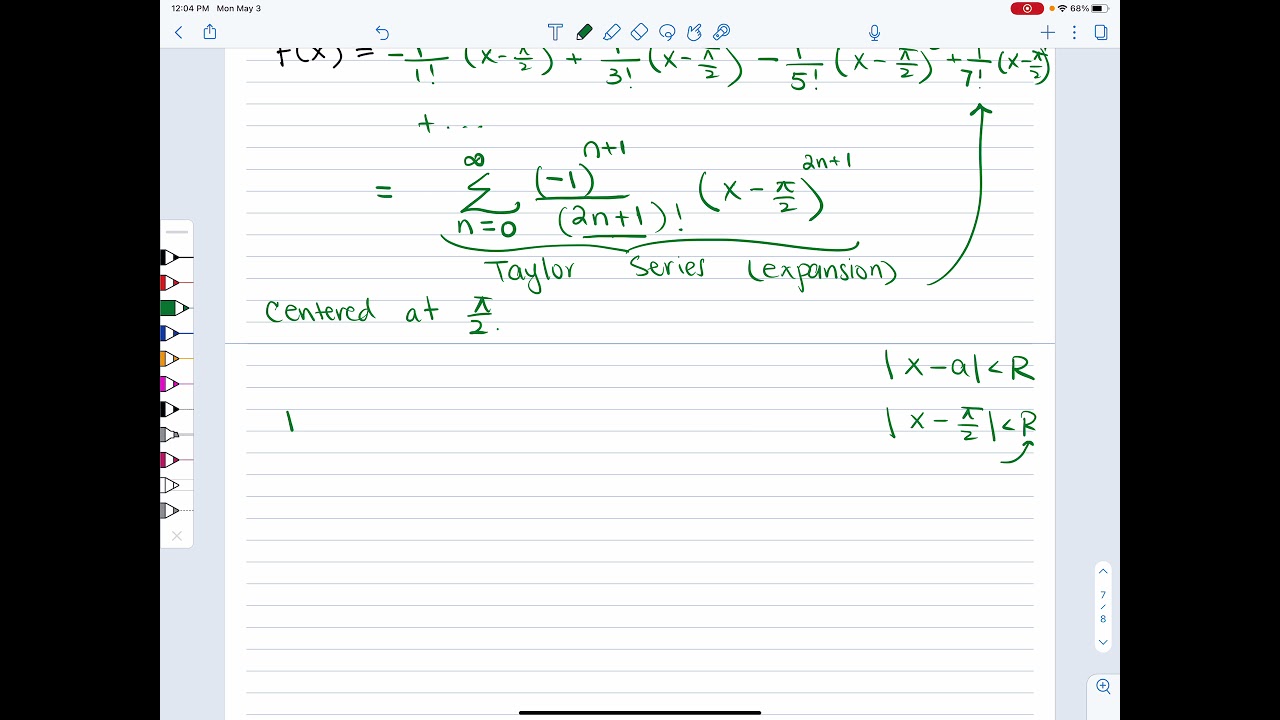 12:04 PM Mon May 3
68%
f(x) = -1/1! (x-π/2) + 1/3! (x-π/2) - 1/5! (x-π/2) + 1/7! (x-π/2)
+ ...
= ∞∑n=0 (-1)^n+1/(2n+1)! (x-π/2)^2n+1
Taylor Series (expansion)
Centered at π/2.
|x-a|<R
|x-π/2|<R
7
/
8